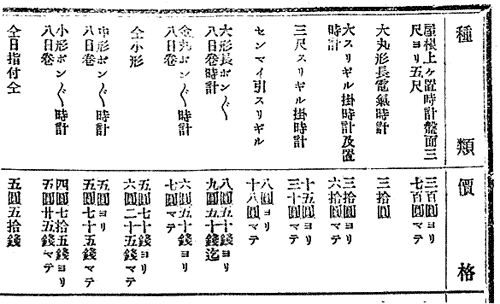 種類
價格
屋根上ヶ置時計盤面三
尺ヨリ五尺
三百圓ヨリ
七百圓マテ
大丸形長電氣時計
三拾圓
六スリギル掛時計及置
時計
三拾圓ヨリ
六拾圓マテ
三尺スリギル掛時計
十五圓ヨリ
三十圓マテ
センマイ引スリギル
八圓ヨリ
十八圓マテ
六形長ボン〱
八日卷時計
八圓五十錢ヨリ
九圓五十錢迄
金丸ボン〱時計
八日卷
六圓五十錢ヨリ
七圓マテ
仝小形
五圓七十錢ヨリ
六圓二十五錢マテ
中形ボン〱時計
八日卷
五圓ヨリ
五圓七十五錢マテ
小形ボン〱時計
八日卷
四圓七拾五錢ヨリ
五圓廿五錢マテ
仝日指付仝
五圓五拾錢